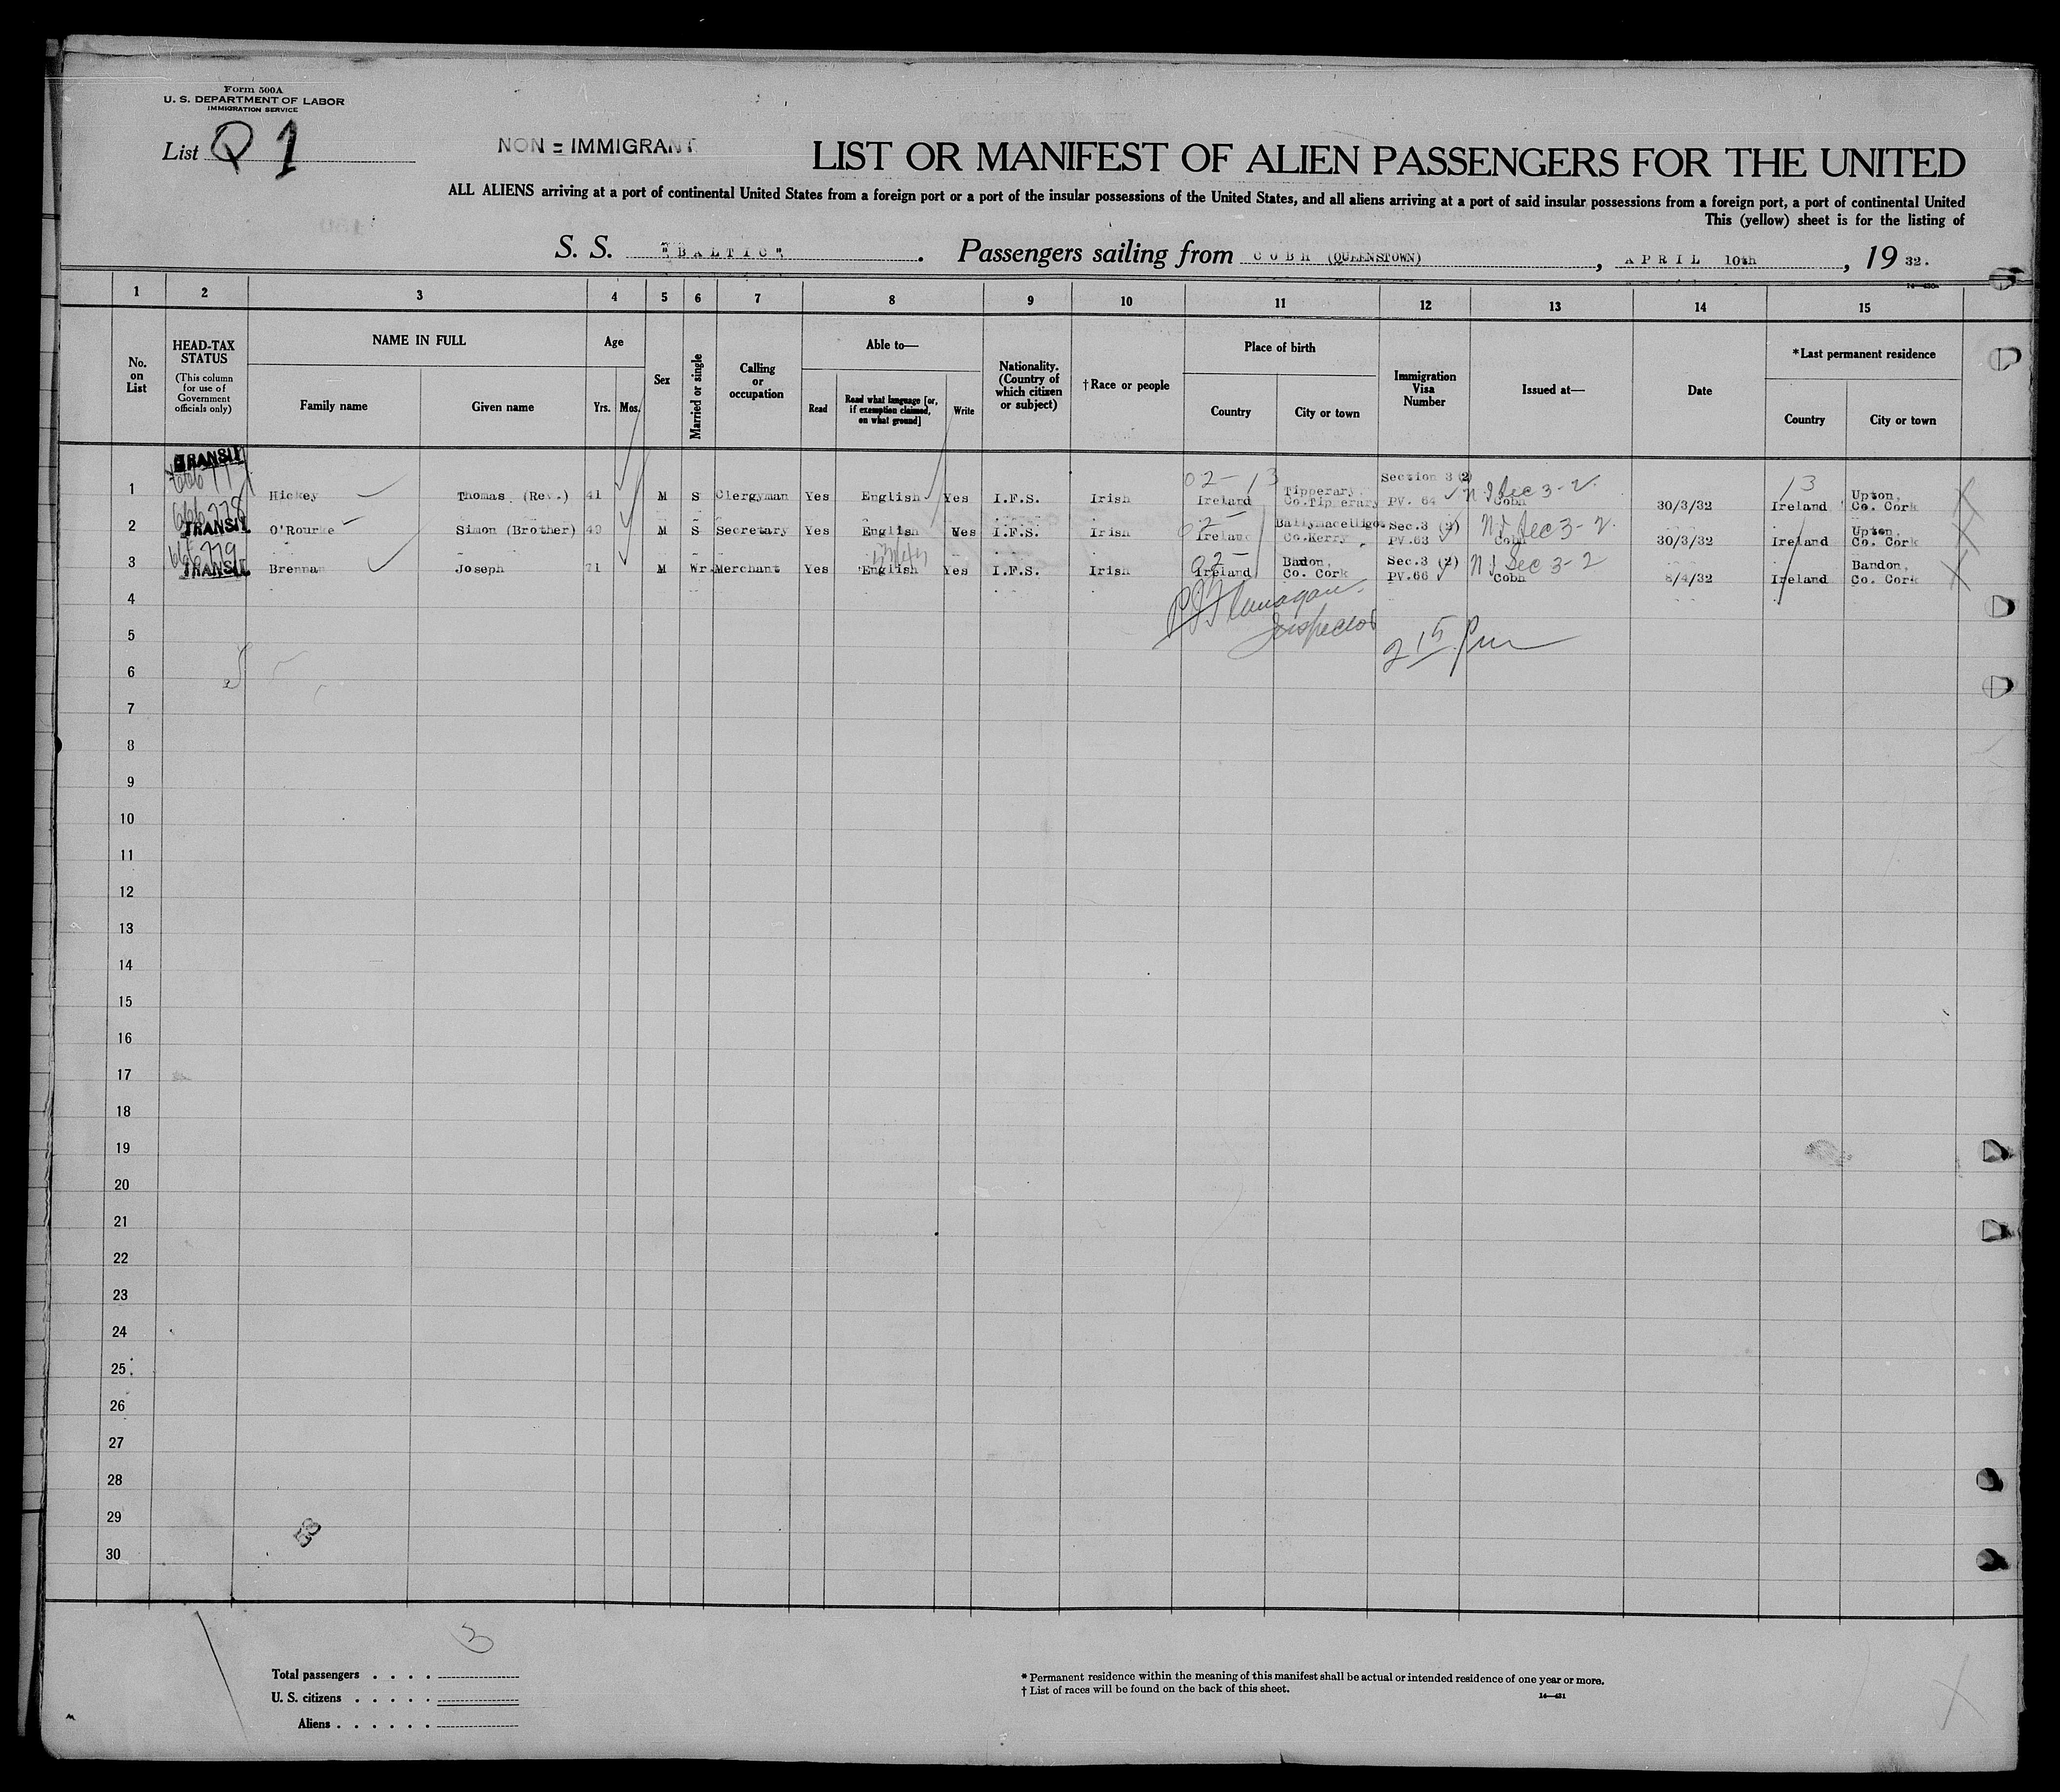 Form 500A
U. S. DEPARTMENT OF LABOR
IMMIGRATION SERVICE
List Q 1
NON = IMMIGRANT
LIST OR MANIFEST OF ALIEN PASSENGERS FOR THE UNITED
ALL ALIENS arriving at a port of continental United States from a foreign port or a port of the insular possessions of the United States, and all aliens arriving at a port of said insular possessions from a foreign port, a port of continental United
This (yellow) sheet is for the listing of
S. S. "BALTIC". Passengers sailing from COBH (QUEENSTOWN), APRIL 10th, 1932.
1 2 3 4 5 6 7 8 9 10 11 12 13 14 15
No. on List
HEAD-TAX STATUS
(This column for use of Government officials only)
NAME IN FULL
Family name
Given name
Age
Yrs.
Mos.
Sex
Married or single
Calling or occupation
Able to—
Read
Read what language [or, if exemption claimed, on what ground]
Write
Nationality. (Country of which citizen or subject)
†Race or people
Place of birth
Country
City or town
Immigration Visa Number
Issued at—
Date
*Last permanent residence
Country
City or town
TRANSIT
666777
02- 13
Section 3 (2)
N I Sec 3-2.
13
1 Hickey Thomas (Rev.) 41 M S Clergyman Yes English Yes I.F.S. Irish Ireland Tipperary, Co.Tipperary PV. 64 Cobh 30/3/32 Ireland Upton, Co. Cork
666778
TRANSIT
02-
N I Sec 3-2.
2 O'Rourke Simon (Brother) 49 M S Secretary Yes English Yes I.F.S. Irish Ireland Ballymacelligot Co.Kerry Sec.3 (2) PV.63 Cobh 30/3/32 Ireland Upton, Co. Cork
666779
TRANSIT
02-
N I Sec 3-2
3 Brennan Joseph 71 M Wr. Merchant Yes English Yes I.F.S. Irish Ireland Bandon, Co. Cork Sec.3 (2) PV.66 Cobh 8/4/32 Ireland Bandon, Co. Cork
4
P J Flanagan
Inspector
5
2 15 Pm
6
7
8
9
10
11
12
13
14
15
16
17
18
19
20
21
22
23
24
25
26
27
28
29
30
3
Total passengers . . . .
U. S. citizens . . . . .
Aliens . . . . . .
* Permanent residence within the meaning of this manifest shall be actual or intended residence of one year or more.
† List of races will be found on the back of this sheet.
14—431